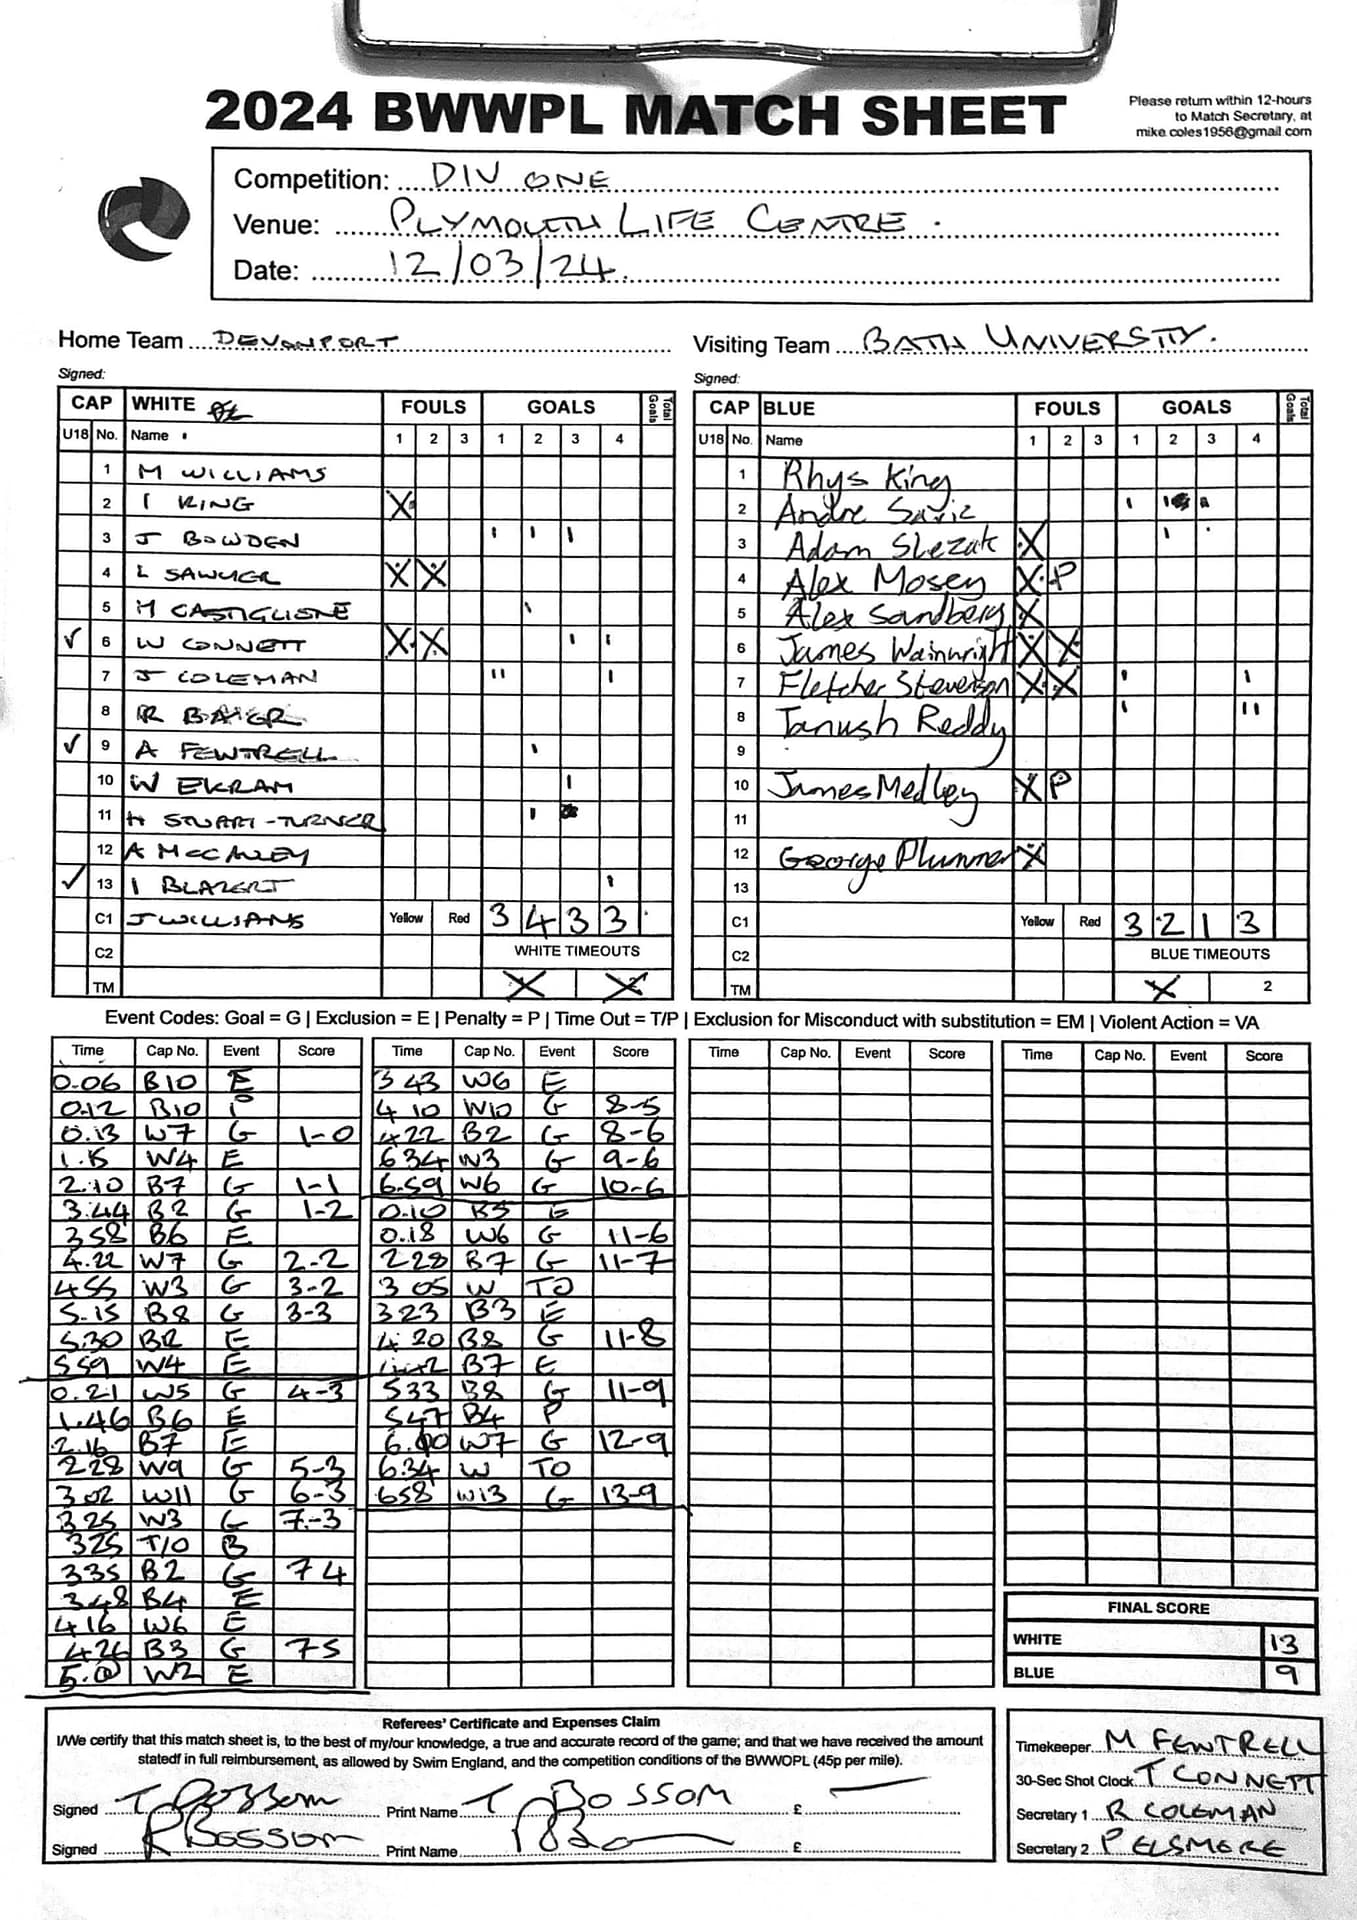 2024 BWWPL MATCH SHEET
Please return within 12-hours
to Match Secretary, at
mike.coles1956@gmail.com
Competition: DIV ONE
Venue: PLYMOUTH LIFE CENTRE.
Date: 12/03/24.
Home Team DEVONPORT
Visiting Team BATH UNIVERSITY.
Signed:
Signed:
CAP WHITE FOULS GOALS Total Goals
U18 No. Name 1 2 3 1 2 3 4
1 M WILLIAMS
2 I KING X
3 J BOWDEN I I I
4 L SAWYER X X
5 M CASTIGLIONE I
✓ 6 W CONNETT X X I I
7 J COLEMAN II I
8 R BAKER
✓ 9 A FEWTRELL I
10 W EKRAM I
11 H STUART-TURNER I
12 A MCCAULEY
✓ 13 I BLAZERT I
C1 J WILLIAMS Yellow Red 3 4 3 3
C2 WHITE TIMEOUTS
TM X X
CAP BLUE FOULS GOALS Total Goals
U18 No. Name 1 2 3 1 2 3 4
1 Rhys King
2 Andre Savic I I
3 Adam Slezak X I
4 Alex Mosey X P
5 Alex Sandberg X
6 James Wainwright X X
7 Fletcher Stevenson X X I I
8 Tanush Reddy I II
9
10 James Medley X P
11
12 George Plummer X
13
C1 Yellow Red 3 2 1 3
C2 BLUE TIMEOUTS
TM X 2
Event Codes: Goal = G | Exclusion = E | Penalty = P | Time Out = T/P | Exclusion for Misconduct with substitution = EM | Violent Action = VA
Time Cap No. Event Score
0.06 B10 E
0.12 B10 P
0.13 W7 G 1-0
1.15 W4 E
2.10 B7 G 1-1
3.44 B2 G 1-2
358 B6 E
4.22 W7 G 2-2
455 W3 G 3-2
5.15 B8 G 3-3
5.30 B12 E
559 W4 E
0.21 W5 G 4-3
1.46 B6 E
2.16 B7 E
228 W9 G 5-3
302 W11 G 6-3
325 W3 G 7-3
325 T/O B
335 B2 G 74
348 B4 E
416 W6 E
426 B3 G 75
W2 E
Time Cap No. Event Score
343 W6 E
4 10 W10 G 8-5
422 B2 G 8-6
634 W3 G 9-6
6.59 W6 G 10-6
0.10 B5 E
0.18 W6 G 11-6
228 B7 G 11-7
305 W TO
323 B3 E
4.20 B8 G 11-8
B7 E
533 B8 G 11-9
547 B4 P
6.00 W7 G 12-9
634 W TO
658 W13 G 13-9
Time Cap No. Event Score
Time Cap No. Event Score
FINAL SCORE
WHITE 13
BLUE 9
Referees' Certificate and Expenses Claim
I/We certify that this match sheet is, to the best of my/our knowledge, a true and accurate record of the game; and that we have received the amount
statedf in full reimbursement, as allowed by Swim England, and the competition conditions of the BWWOPL (45p per mile).
Signed T Bossom Print Name T BOSSOM £ —
Signed R Bossom Print Name £
Timekeeper M FEWTRELL
30-Sec Shot Clock T CONNETT
Secretary 1 R COLEMAN
Secretary 2 P ELSMORE